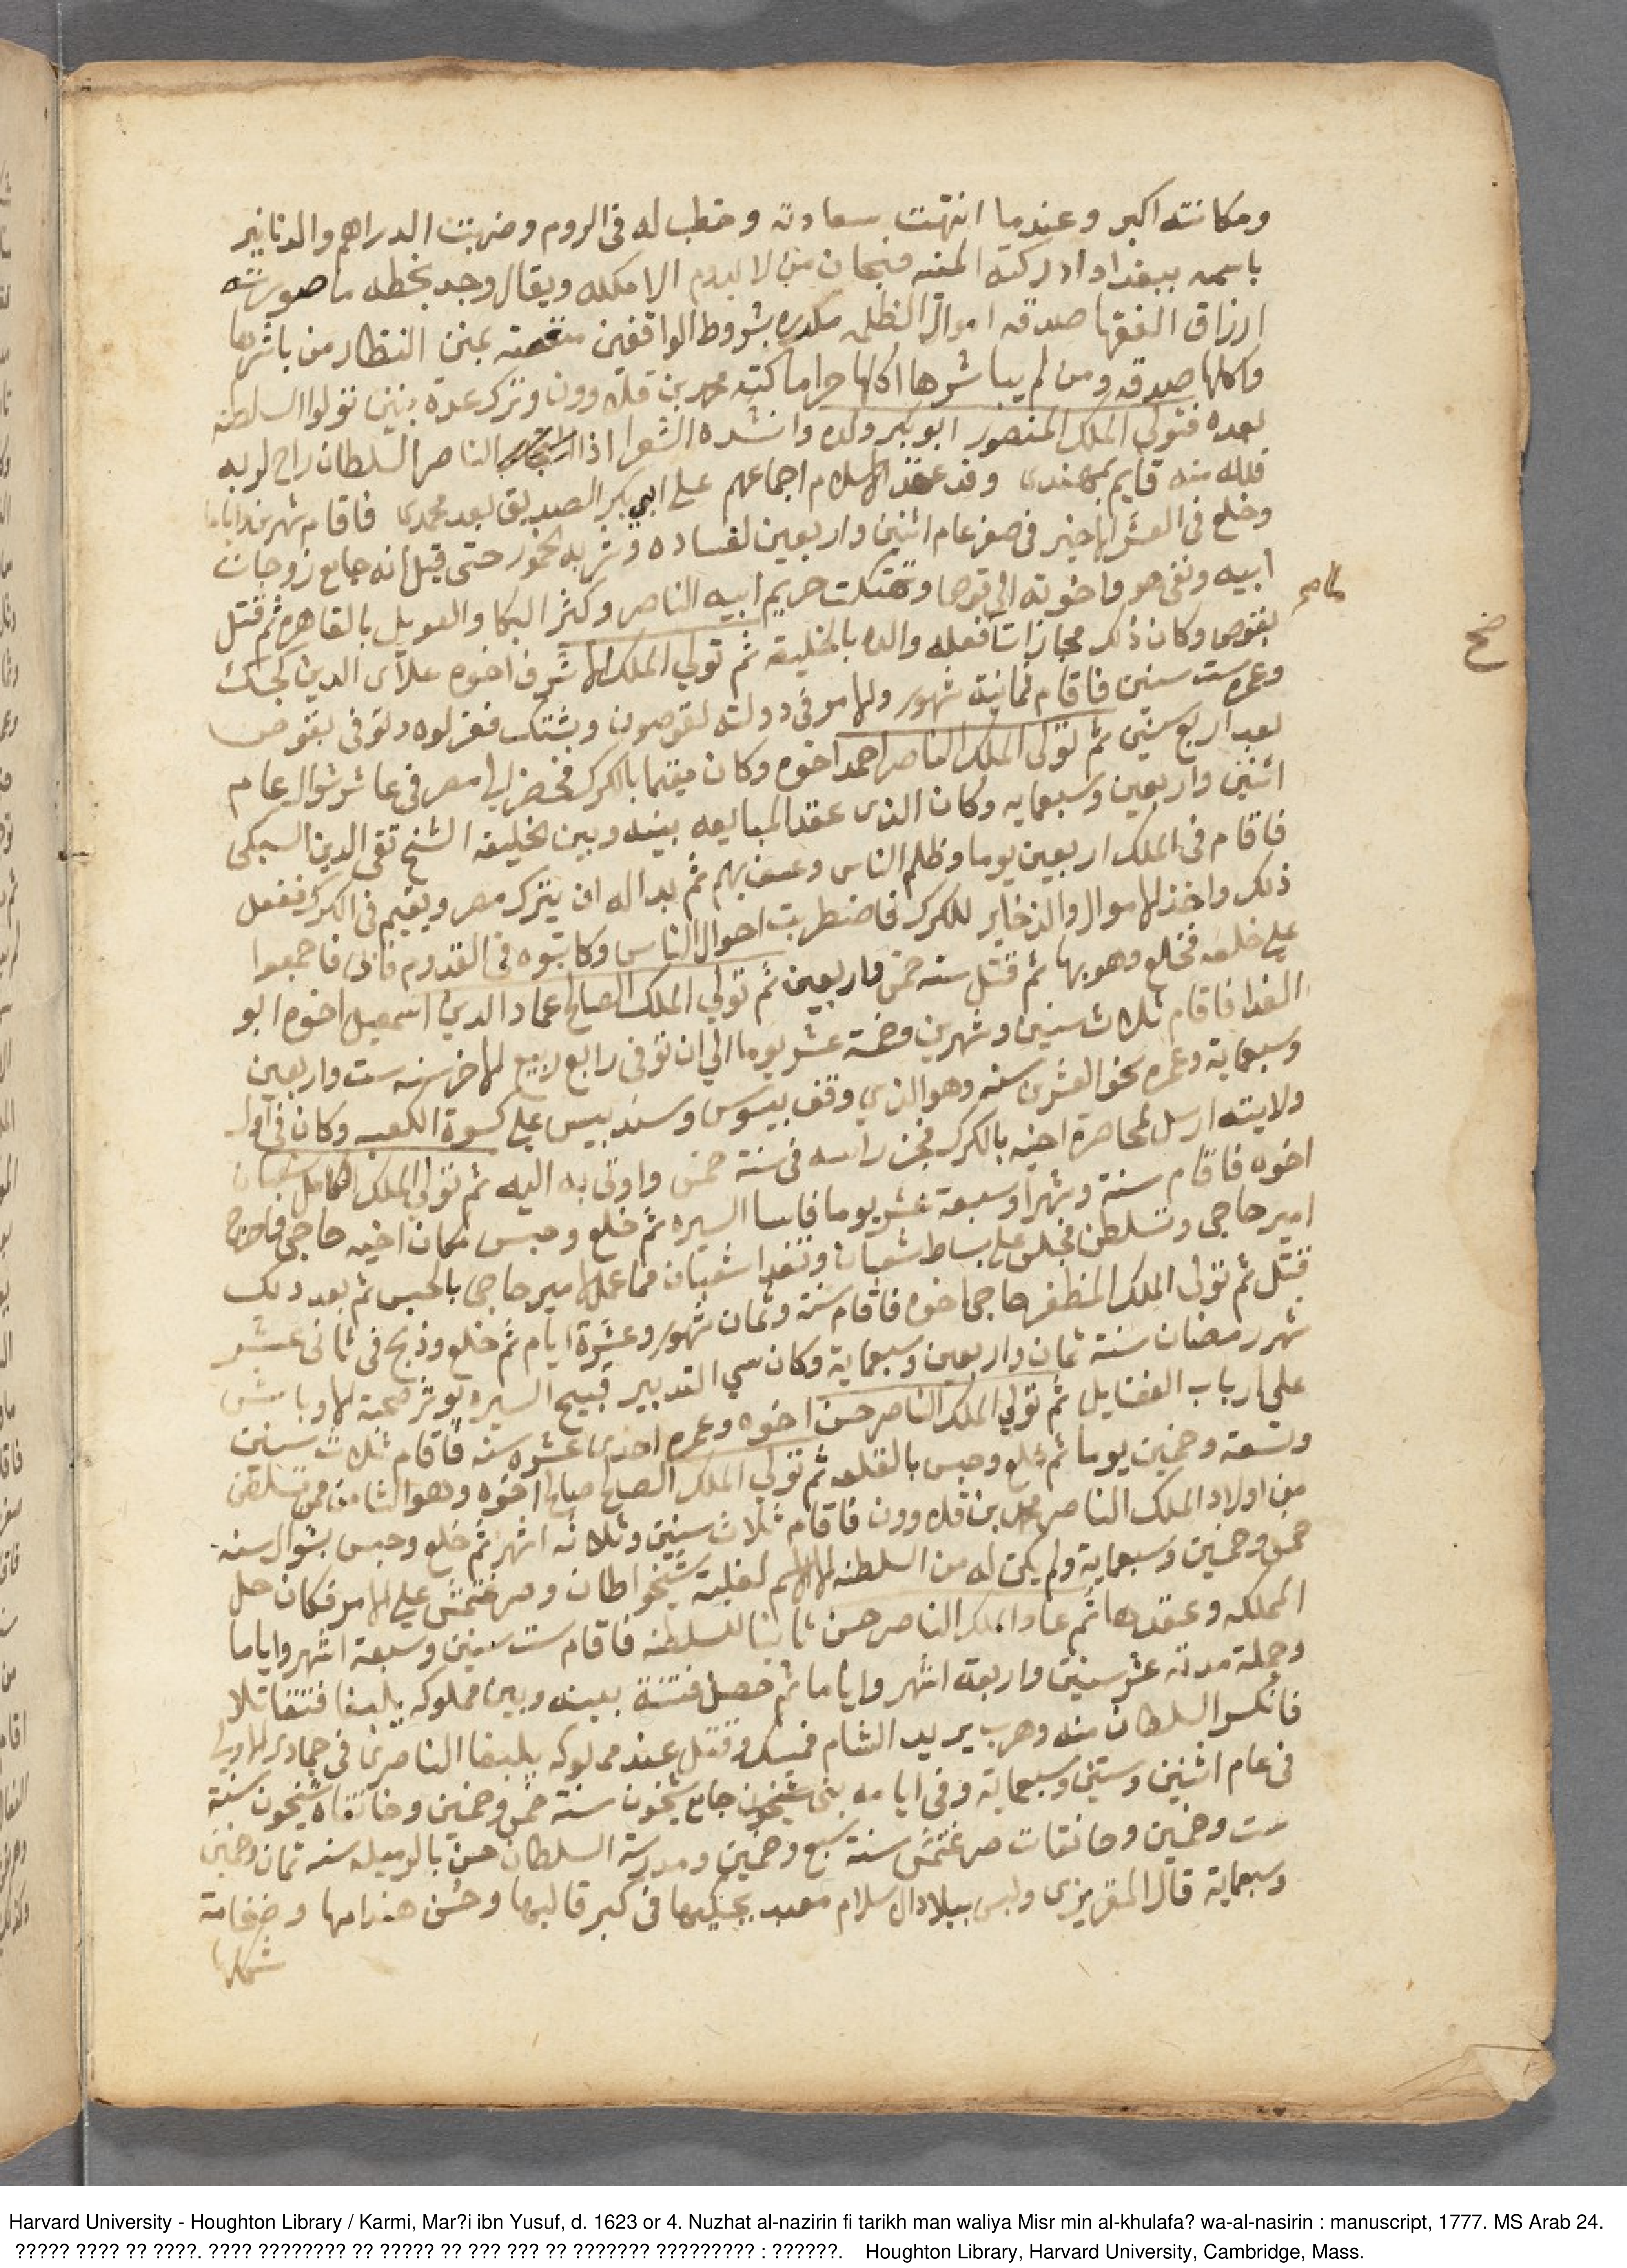 ومكانته اكبر وعندما انتهت سعادته وخطب له فى الروم وضربت الدراهم والدنانير
باسمه ببغداد ادركته المنيه فسبحان من لا يدوم الا ملكه ويقال وجد بخطه ما صورته
ارزاق الفقها صدقه اموال الظلمه مكدره بشروط الواقفين منغصة بمنن النظار من باشرها
واكلها صدقه ومن لم يباشرها اكلها حراما كتبه محمد بن قلاوون وترك عدة بنين تولوا السلطنه
بعده فتولى الملك المنصور ابو بكر ولده وانشده الشعرا اذا الناصر السلطان راح لربه
فلله منه قايم بمهندى وقد عقد الاسلام اجماعهم على ابى بكر الصديق بعد محمدى فاقام شهرين واياما
وخلع فى العشر الاخير فى صفر عام اثنين واربعين لفساده وشربه الخمور حتى قيل انه جامع زوجات
ابيه ونفى هو واخوته الى قوص وهتكت حريم ابيه الناصر وكثر البكا والعويل بالقاهره ثم قتل
بقوص وكان ذلك مجازات فعله والده بالخليفه ثم تولى الملك الاشرف اخوه علاى الدين كجك
وعمره ست سنين فاقام ثمانية شهور والامر فى دولته لقوصون وبشتك فعزلوه وتوفى بقوص
بعد اربع سنين ثم تولى الملك الناصر احمد اخوه وكان مقيما بالكرك فحضر الى مصر فى عاشر شوال عام
اثنين واربعين وسبعمايه وكان الذى عقد المبايعه بينه وبين الخليفه الشيخ تقى الدين السبكى
فاقام فى الملك اربعين يوما وظلم الناس وعسف بهم ثم بدا له ان يترك مصر ويقيم فى الكرك ففعل
ذلك واخذ الاموال والذخاير للكرك فاضطربت احوال الناس وكاتبوه فى القدوم فابى فاجمعوا
على خلعه فخلع وهو بها ثم قتل سنه خمس واربعين ثم تولى الملك الصالح عماد الدين اسمعيل اخوه ابو
الفدا فاقام ثلاث سنين وشهرين وخمسة عشر يوما الى ان توفى رابع ربيع الاخر سنه ست واربعين
وسبعماية وعمره نحو العشرين سنه وهو الذي وقف بيسوس وسندبيس على كسوة الكعبه وكان فى اول
ولايته ارسل لمحاصرة اخيه بالكرك فجز راسه فى سنة خمس واوتى به اليه ثم تولى الملك الكامل شعبان
اخوه فاقام سنة وشهرا وسبعة عشر يوما فاسا السيره ثم خلع وحبس مكان اخيه حاجى فاخرج
امير حاجى وتسلطن فجلس على بساط شعبان وتغدا شعبان مما عمل لامير حاجى بالحبس ثم بعد ذلك
قتل ثم تولى الملك المظفر حاجى اخوه فاقام سنة وثمان شهور وعشرة ايام ثم خلع وذبح فى ثانى عشر
شهر رمضان سنة ثمان واربعين وسبعماية وكان سي التدبير قبيح السيره يوثر صحبة الاوباش
على ارباب الفضايل ثم تولى الملك الناصر حسن اخوه وعمره احدى عشره سنه فاقام ثلاث سنين
وتسعة وخمسين يوما ثم خلع وحبس بالقلعه ثم تولى الملك الصالح صالح اخوه وهو الثامن ممن تسلطن
من اولاد الملك الناصر محمد بن قلاوون فاقام ثلاث سنين وثلاثه اشهر ثم خلع وحبس بشوال سنه
خمس وخمسين وسبعماية ولم يكن له من السلطنه الا الاسم لغلبة شيخو وطاز وصرغتمش على الامر فكان حل
المملكه وعقدها ثم عاد الملك الناصر حسن ثانيا للسلطنه فاقام ست سنين وسبعة اشهر واياما
وجملة مدته عشر سنين واربعة اشهر واياما ثم حصل فتنة بينه وبين مملوكه يلبغا فتقاتلا
فانكسر السلطان منه وهرب يريد الشام فمسك وقتل عند مملوكه يلبغا الناصرى فى جمادى الاولى
فى عام اثنين وستين وسبعماية وفى ايامه بنى شيخون جامع شيخون سنة خمس وخمسين وخانقاه شيخون سنة
ست وخمسين وخانقات صرغتمش سنة سبع وخمسين ومدرسة السلطان حسن بالرميله سنه ثمان وخمسين
وسبعماية قال المقريزى وليس ببلاد الاسلام معبد يحكيها فى كبر قالبها وحسن هندامها وضخامة
شكلها